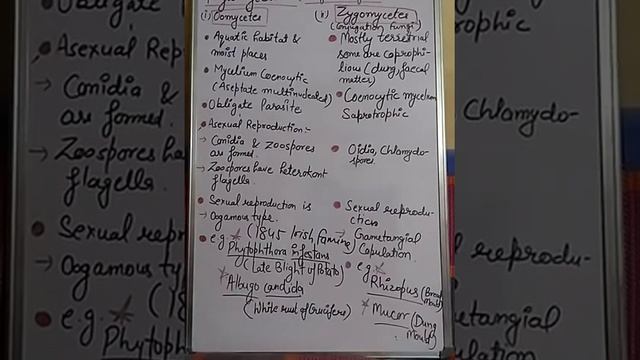 (i) Oomycetes
Aquatic habitat &
moist places
Mycelium Coenocytic
(Aseptate multinucleated)
Obligate Parasite
Asexual Reproduction:-
→ Conidia & Zoospores
are formed.
→ Zoospores have heterokont
flagella.
Sexual reproduction is
→ Oogamous type.
e.g. * (1845 Irish famine)
Phytophthora infestans
(Late Blight of Potato)
* Albugo candida
(White rust of Crucifere)
(ii) Zygomycetes
(Conjugation Fungi)
Mostly terrestrial
some are coprophi-
lious (dung, faecal
matter)
Coenocytic mycelium
Saprotrophic
Oidia, Chlamydo-
spores.
Sexual reprodu-
ction
→ Gametangial
Copulation.
e.g. *
Rhizopus (Bread
Mould)
* Mucor (Dung
Mould)
Asexual Repr
→ Conidia &
are formed.
→ Zoospores ha
flagella.
Sexual repr
→ Oogamous
e.g. *
Phytoph
Chlamydo-
reprodu-